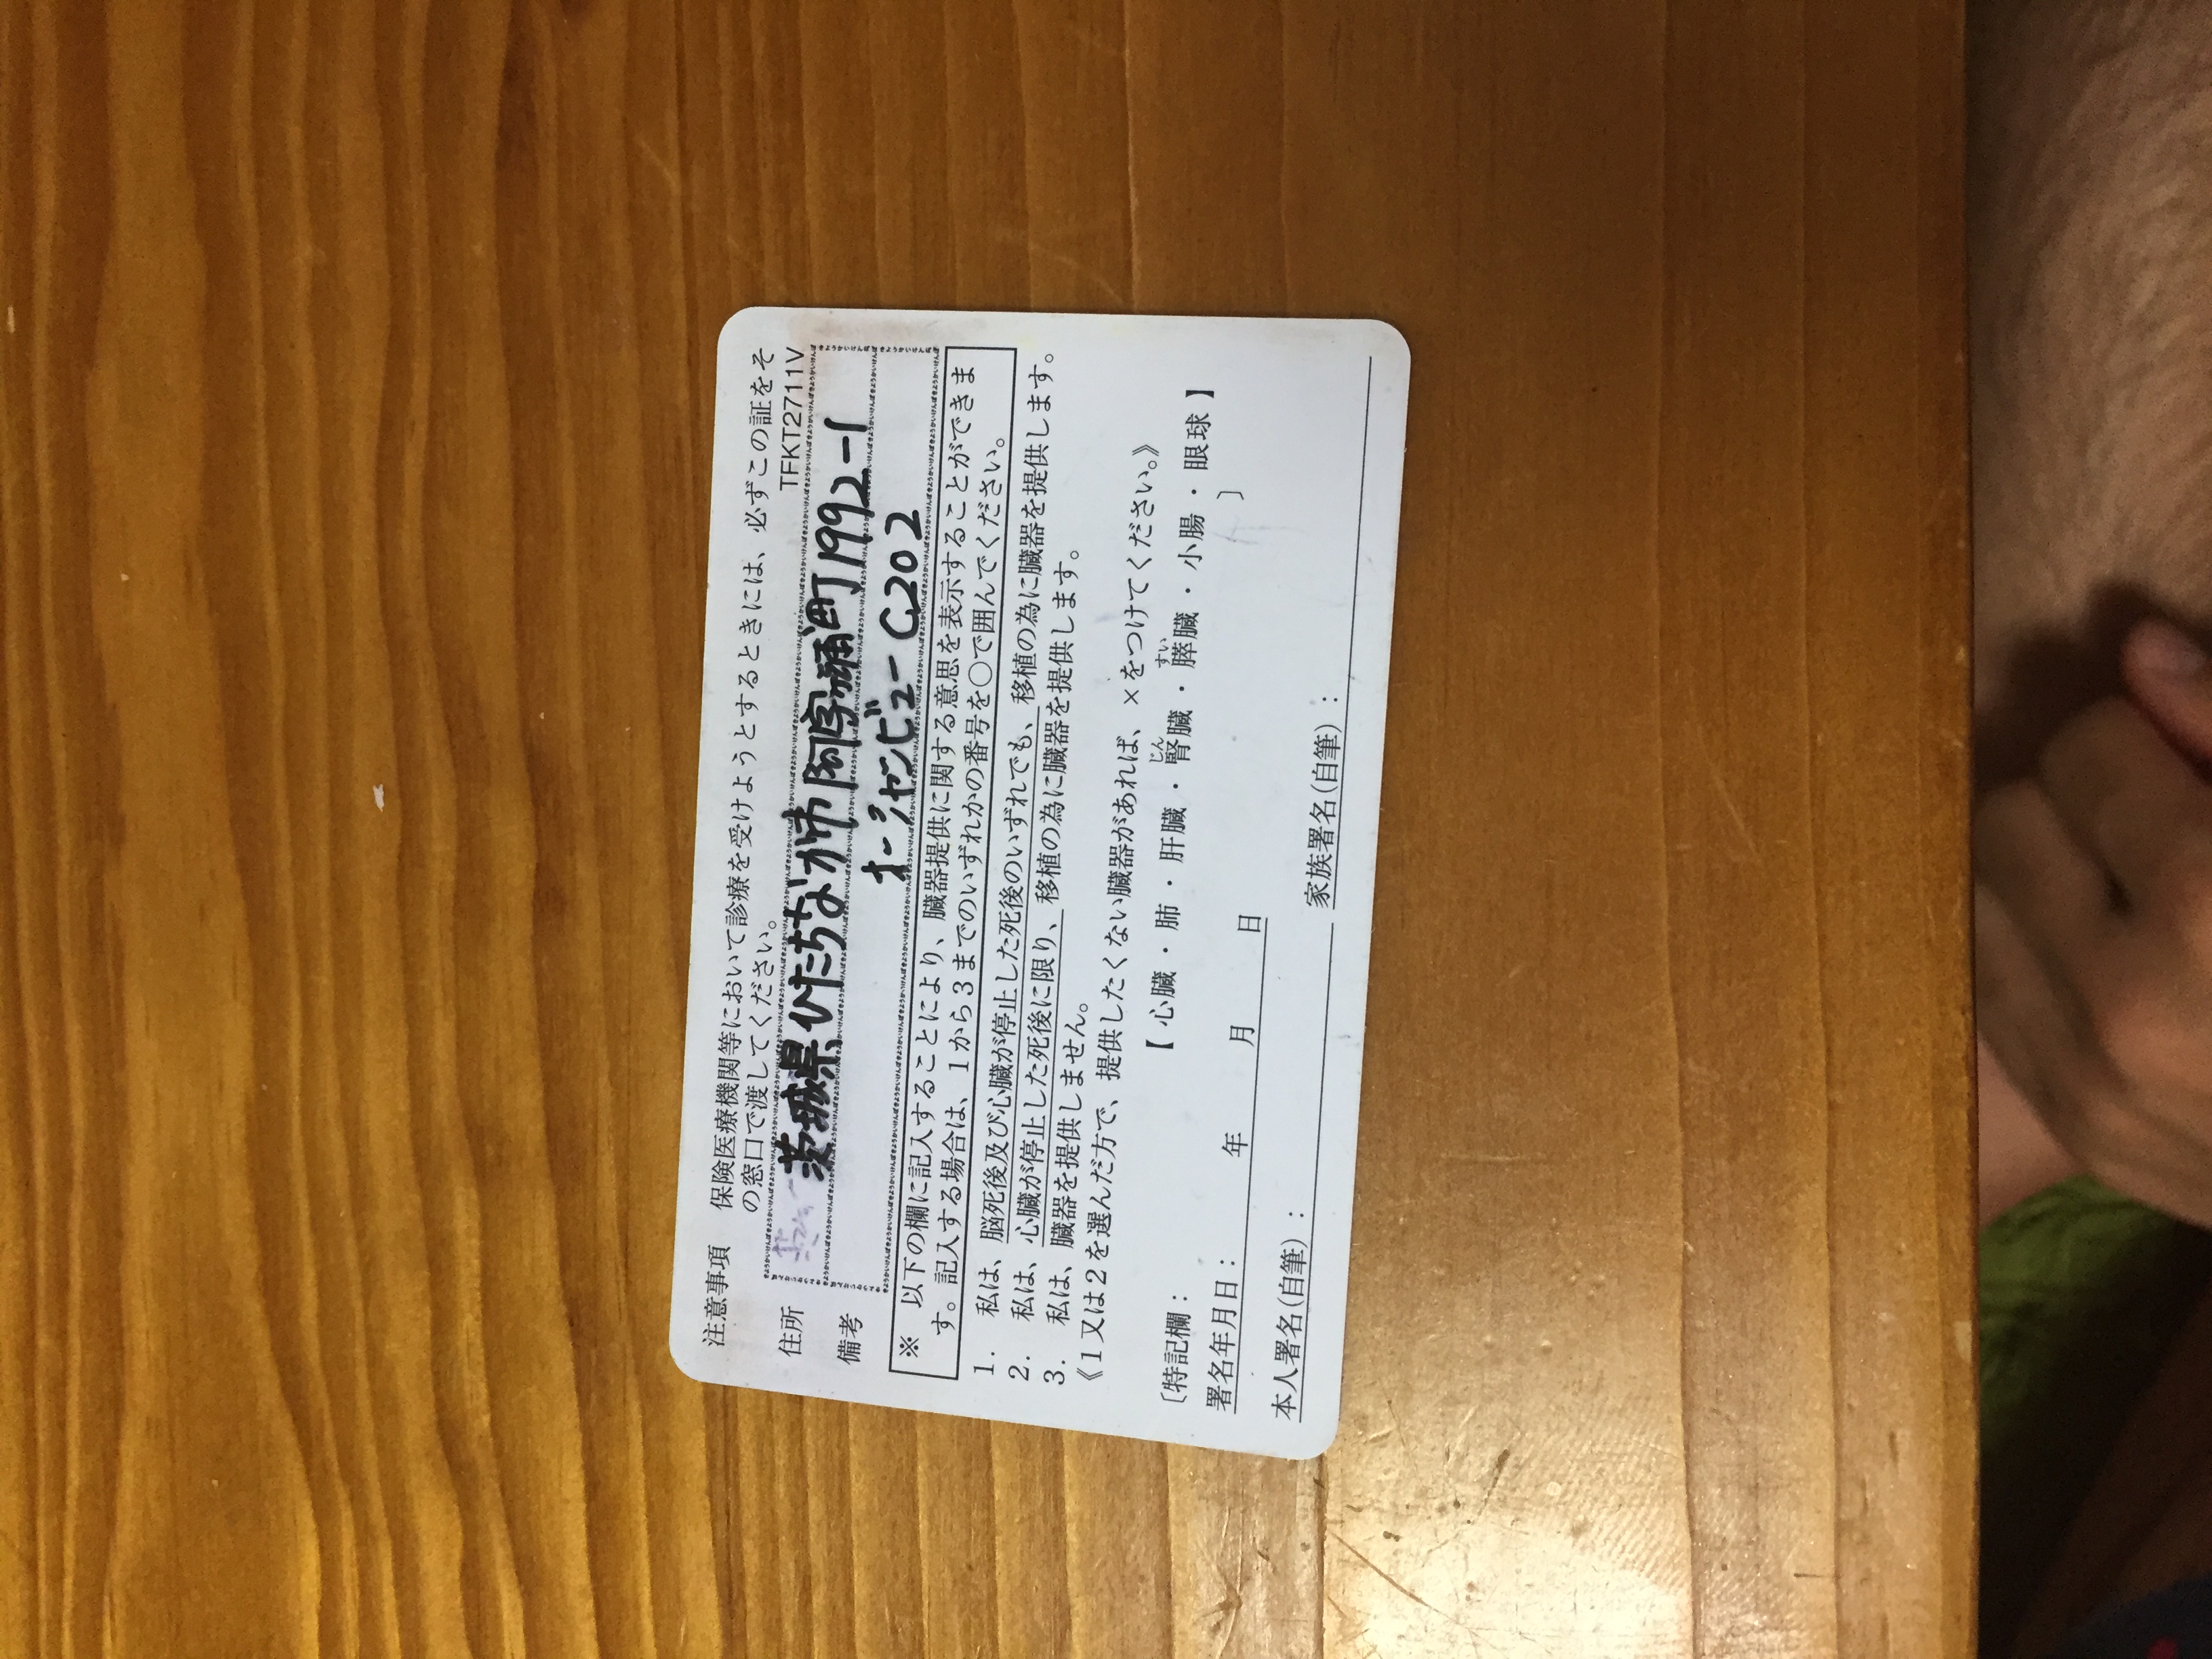 注意事項　保険医療機関等において診療を受けようとするときには、必ずこの証をそ
の窓口で渡してください。
TFKT2711V
住所　茨城県ひたちなか市阿字ヶ浦町1992-1
備考　オーシャンビューC202
※　以下の欄に記入することにより、臓器提供に関する意思を表示することができま
す。記入する場合は、１から３までのいずれかの番号を〇で囲んでください。
1.　私は、脳死後及び心臓が停止した死後のいずれでも、移植の為に臓器を提供します。
2.　私は、心臓が停止した死後に限り、移植の為に臓器を提供します。
3.　私は、臓器を提供しません。
《１又は２を選んだ方で、提供したくない臓器があれば、×をつけてください。》
じん　すい
【 心臓 ・ 肺 ・ 肝臓 ・ 腎臓 ・ 膵臓 ・ 小腸 ・ 眼球 】
〔特記欄：　〕
署名年月日：　年　月　日
本人署名(自筆)：　家族署名(自筆)：